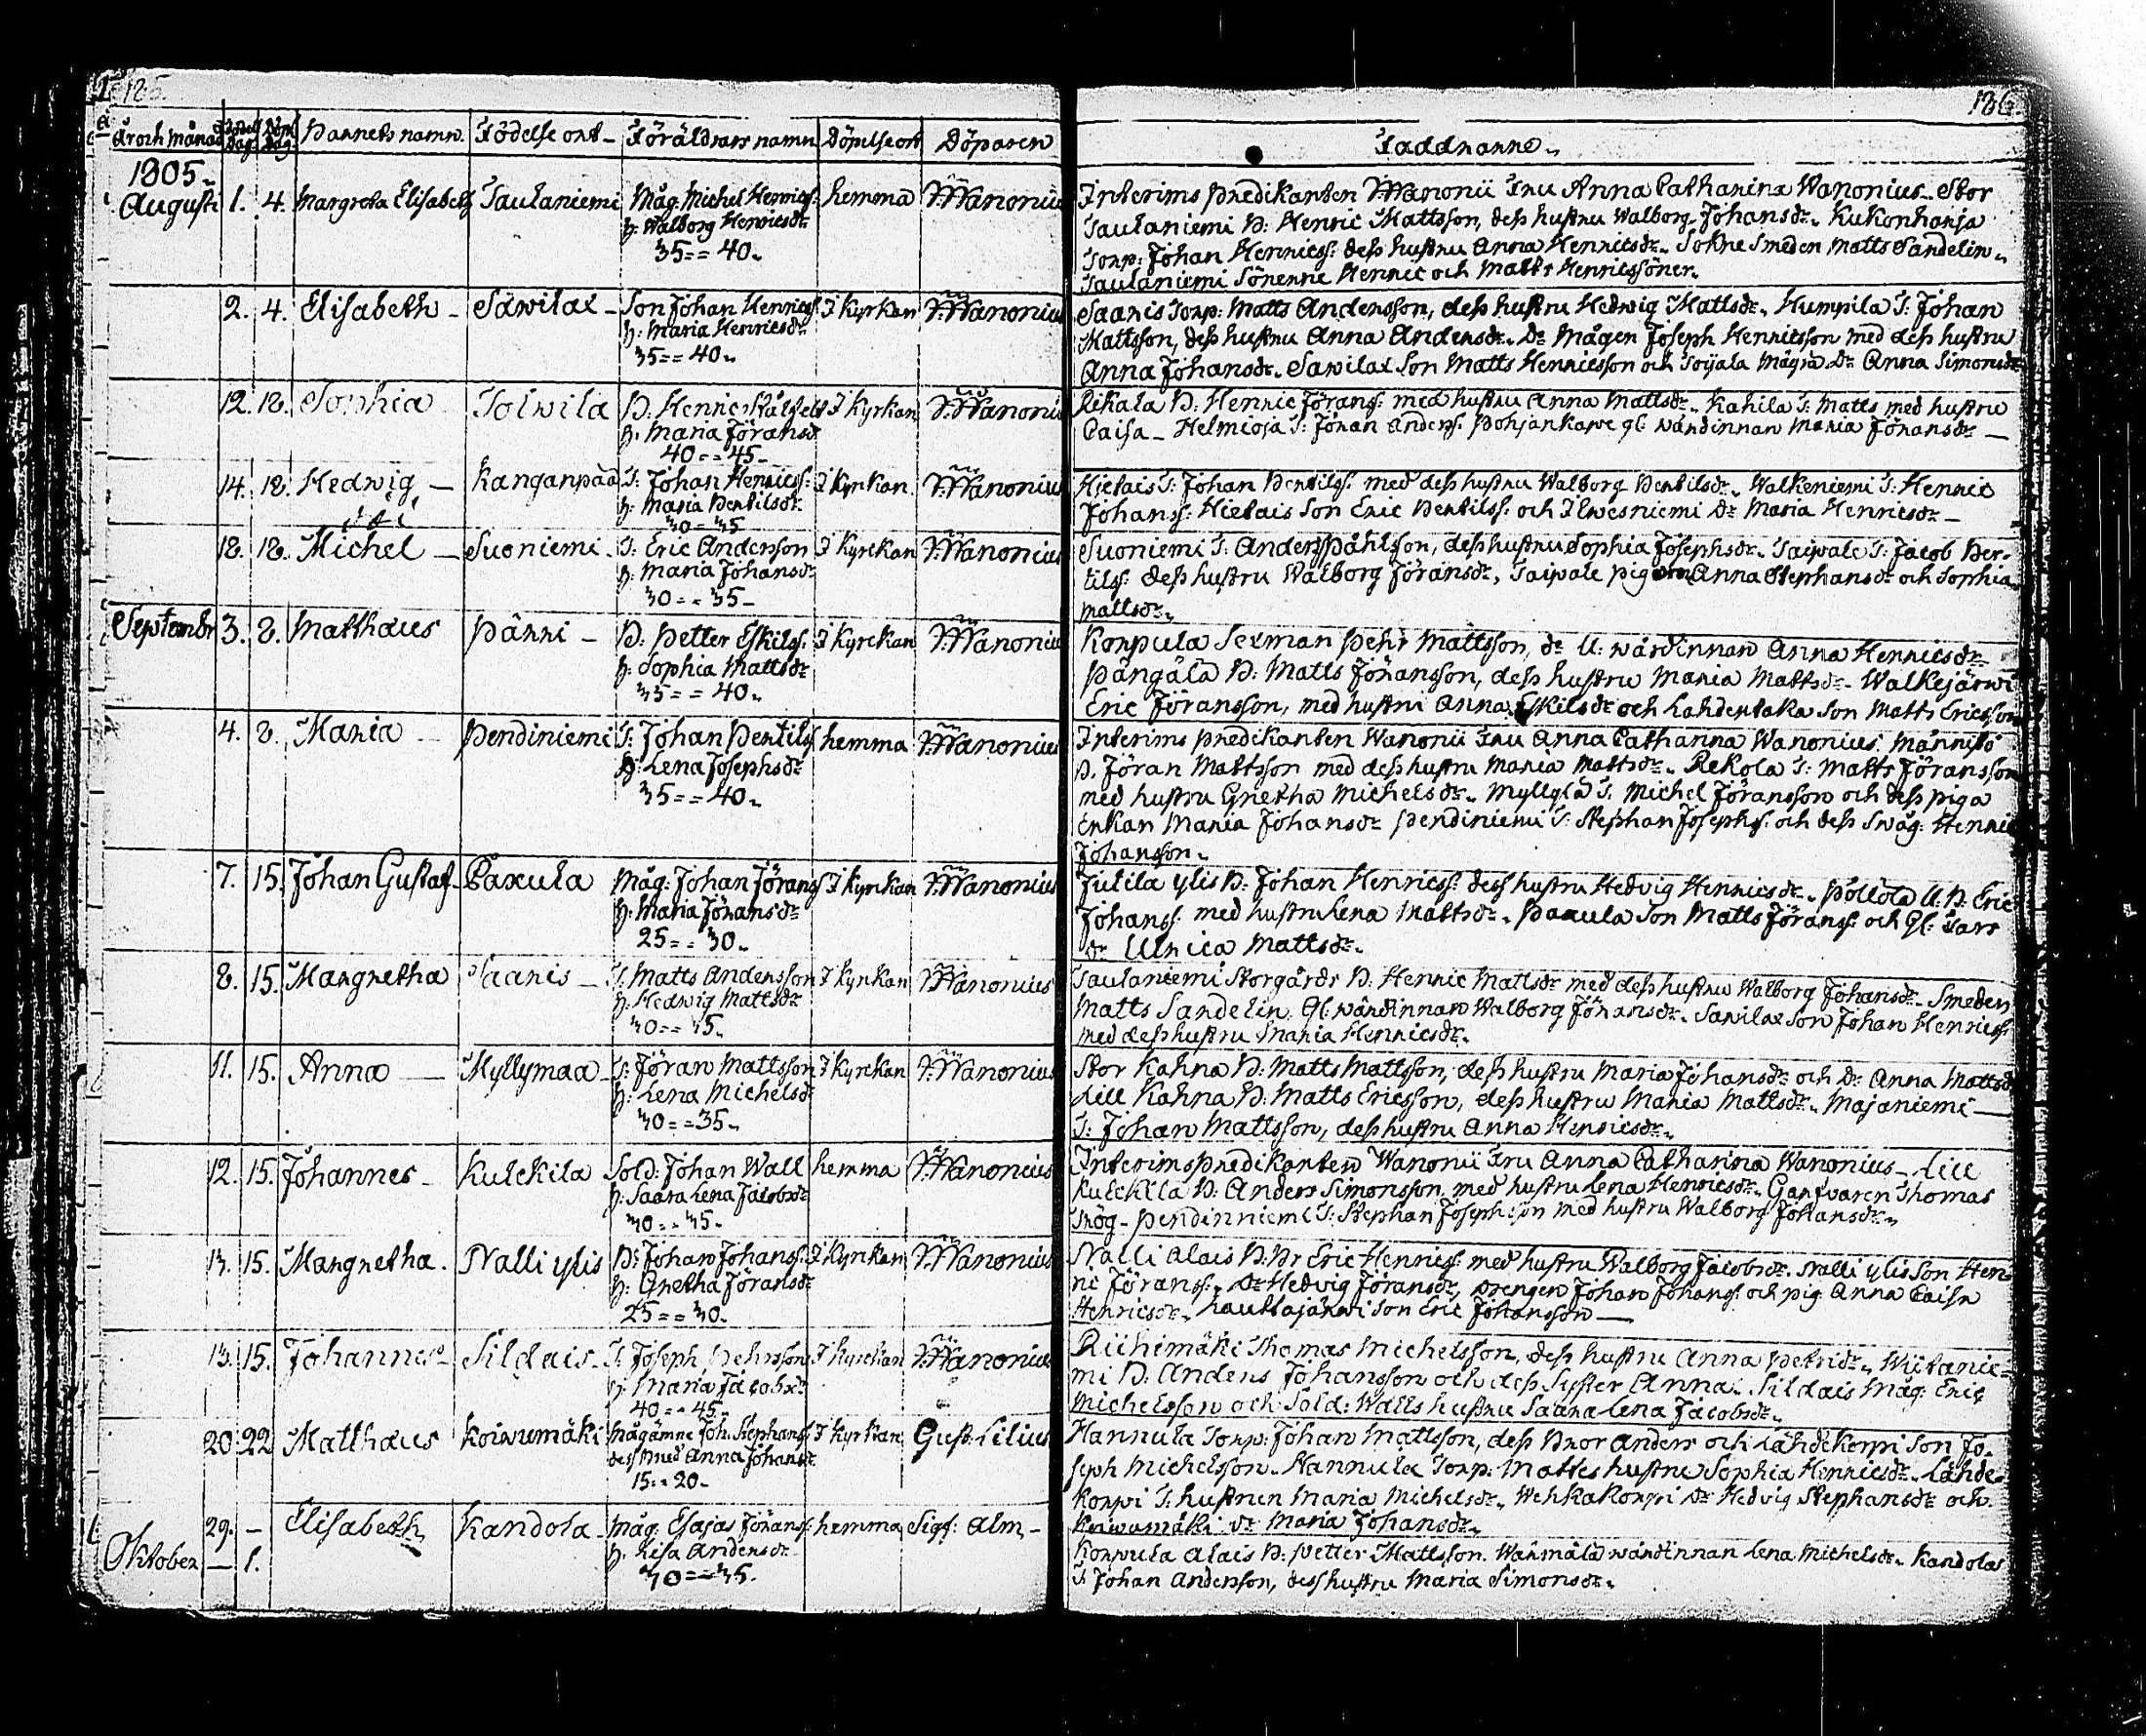 125.
År och Månad Födelse dag Döpt dag Barnets namn. Födelse ort Föräldrars namn Döpelse ort Döparen
1805
Augusti 1. 4. Margreta Elisabeth Sautaniemi Måg. Michel Henrics: hemma Wanonius
h: Walborg Henricsdr
35 = = 40.
2. 4. Elisabeth Sawilax Son Johan Henrics: I Kyrkan Wanonius
h: Maria Henricsdr
35 = = 40.
12. 18. Sophia Tolwila B: Henric I Kyrkan Wanonius
h: Maria Jöransdr
40 = = 45
14. 18. Hedwig Kanganpää T: Johan Henrics: I Kyrkan Wanonius
h: Maria Bertilsdr
30 = 35
18. 18. Michel Suoniemi T: Eric Andersson I Kyrkan Wanonius
h: Maria Johansdr
30 = = 35
Septembr 3. 8. Matthæus Pärri B: Petter Eskilss: I Kyrckan Wanonius
h: Sophia Mattsdr
35 = = 40.
4. 8. Maria Pendiniemi T: Johan Bertils: hemma Wanonius
h: Lena Josephsdr
35 = = 40.
7. 15. Johan Gustaf Paxula Måg: Johan Jörans: I Kyrkan Wanonius
h: Maria Jöransdr
25 = = 30.
8. 15. Margretha Saaris T: Matts Andersson I Kyrkan Wanonius
h: Hedwig Mattsdr
11. 15. Anna Myllymaa T: Jöran Mattsson I Kyrckan Wanonius
h: Lena Michelsdr
30 = = 35.
12. 15. Johannes Kulckila Sold: Johan Wall hemma Wanonius
h: Saara Lena Jacobsdr
13. 15. Margretha Nalli ylis B: Johan Johans: I Kyrkan Wanonius
h: Gretha Jöransdr
25 = = 30.
13. 15. Johannes Sildais T: Joseph Pehrsson I Kyrckan Wanonius
h: Maria Jacobsdr
40 = = 45.
20. 22 Matthæus Koiwumäki Mågämne Joh: Stephans: I Kyrkan Gust: Lilius
dess Anna Johansdr
15 = = 20.
29. Elisabeth Kandola Måg. Esajas Jörans: hemma Sigf: Alm
Oktober 1. h: Lisa Andersdr
126.
Faddrarne
Interims predikanten Wanonii Fru Anna Catharina Wanonius Stor
Sautaniemi B: Henric Mattsson, dess hustru Walborg Johansdr Kukonharja
Torp: Johan Henrics: dess hustru Anna Henricsdr Sokne Smeden Matts Sandelin
Sautaniemi Sönerne Henric och Matts Henricssöner.
Saaris Torp: Matts Andersson, dess hustru Hedwig Mattsdr Humpila T: Johan
Mattsson, dess hustru Anna Andersdr Dr Mågen Joseph Henricsson med dess hustru
Anna Johansdr Sawilax Son Matts Henricsson och Soijala Dr Anna Simonsdr
Rekala B: Henric Jörans: med hustru Anna Mattsdr Kahila T: Matts med hustru
Caisa Helmioja T: Johan Anders: Pohjankape gl: wärdinnan Maria Jöransdr
Hietais T: Johan Bertils: med dess hustru Walborg Bertilsdr Walkeniemi T: Henric
Johans: Hietais Son Eric Bertils: och Ilwesniemi Dr Maria Henricsdr
Suoniemi T: Anders Påhlsson, dess hustru Sophia Josephsdr Taipale T: Jacob Ber-
tilss: dess hustru Walborg Jöransdr, Taipale pigorna Anna Stephansdr och Sophia
Mattsdr
Korpula Sexman Pehr Mattsson, dr U: wärdinnan Anna Henricsdr
Pängälä B: Matts Jöransson, dess hustru Maria Mattsdr Walkejärwi
Eric Jöransson, med hustru Anna Eskilsdr och Lahdentaka Son Matts Ericsson
Interims predikanten Wanonii Fru Anna Catharina Wanonius. Männistö
B. Jöran Mattsson med dess hustru Maria Mattsdr Rekola T: Matts Jöransson
med hustru Gretha Michelsdr Myllylä T: Michel Jöransson och dess piga
Enkan Maria Johansdr Pendiniemi T: Stephan Josephs: och dess Swåg: Henric
Johansson.
Jutila ylis B: Johan Henrics: dess hustru Hedvig Henricsdr Pöllölä U. B: Eric
Johans: med hustru Lena Mattsdr Paxula Son Matts Jörans: och Gl: Sars
dr Ulrica Mattsdr
Sautaniemi Storgårds B: Henric Mattsdr med dess hustru Walborg Johansdr Smeden
Matts Sandelin Gl: wärdinnan Walborg Jöransdr Sawilax Son Johan Henrics:
med dess hustru Maria Henricsdr
Stor Kahna B: Matts Mattsson, dess hustru Maria Johansdr och Dr Anna Mattsdr
Lill Kahna B: Matts Ericsson, dess hustru Maria Mattsdr Majaniemi
T: Johan Mattsson, dess hustru Anna Henricsdr
Interimspredikanten Wanonii Fru Anna Catharina Wanonius Lill
Kulckila B: Anders Simonsson, med hustru Lena Henricsdr Garfvaren Thomas
Skög Pendinniemi T: Stephan Josephsson med hustru Walborg Johansdr
Nalli Alais B: Br Eric Henrics: med hustru Walborg Jacobsdr Nalli ylis Son Hen-
ric Jörans: Dr Hedvig Jöransdr, Drengen Johan Johans: och pig. Anna Caisa
Henricsdr Lauttajärwi Son Eric Johansson
Riihimäki Thomas Michelsson, dess hustru Anna Petridr Wijtanie-
mi B: Anders Johansson och dess Syster Anna Sildais Måg: Eric
Michelsson och Sold: Walls hustru Saara Lena Jacobsdr
Hannula Torp: Johan Mattsson, dess Bror Anders och Lähdekorpi Son Jo-
seph Michelsson. Hannula Torp: Mattes hustru Sophia Henricsdr Lähde-
korpi T: hustrun Maria Michelsdr Wehkakorpi Dr Hedvig Stephansdr och
Koiwumäki Dr Maria Johansdr
Korpula Alais B: Petter Mattsson. Warmälä wärdinnan Lena Michelsdr Kandolas
T: Johan Andersson, dess hustru Maria Simonsdr